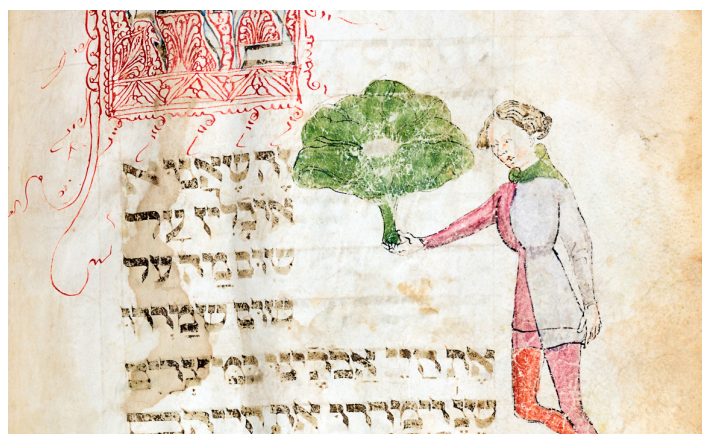 זֶה שֶׁאָנוּ
אוֹכְלִין עַל
שׁוּם מַה עַל
שׁוּם שֶׁמֵּרְרוּ
אֶת חַיֵּי אֲבֹתֵינוּ בְּמִצְרַיִם
שנ וַיְמָרְרוּ אֶת חַיֵּיהֶם